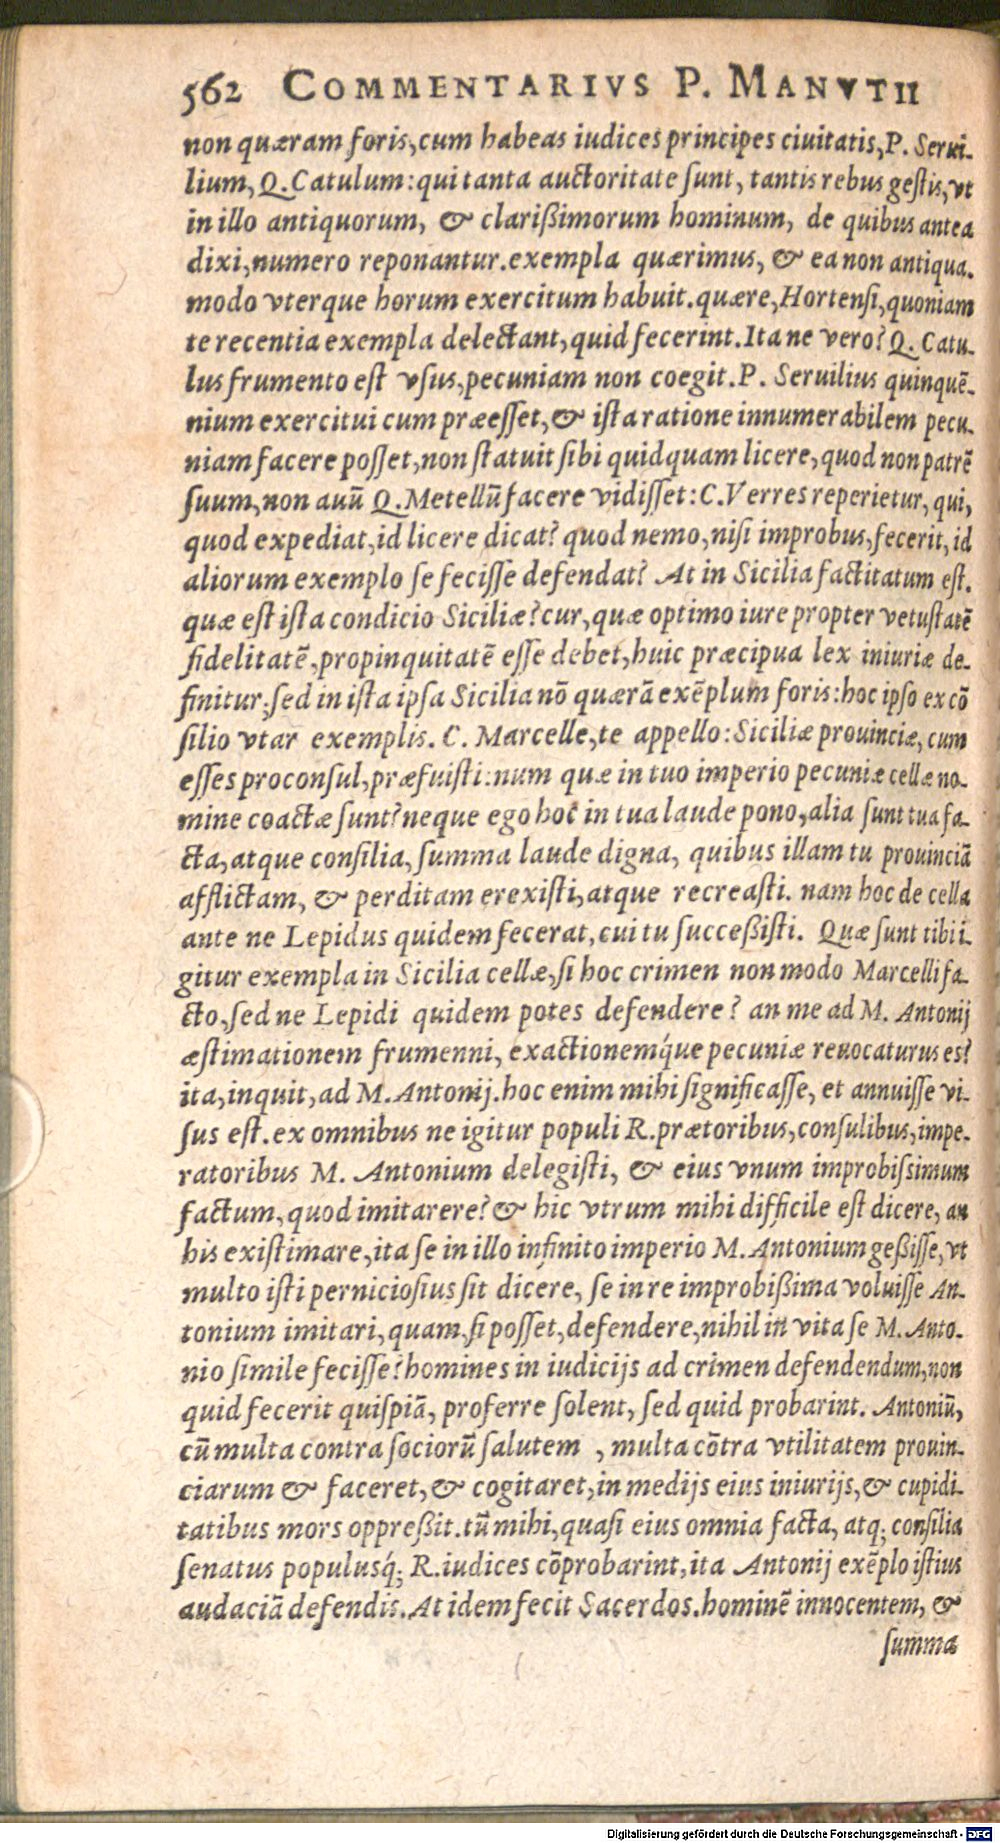 562 COMMENTARIVS P. MANVTII
non quæram foris, cum habeas iudices principes ciuitatis, P. Serui-
lium, Q. Catulum: qui tanta auctoritate ſunt, tantis rebus geſtis, vt
in illo antiquorum, & clarißimorum hominum, de quibus antea
dixi, numero reponantur. exempla quærimus, & ea non antiqua.
modo vterque horum exercitum habuit. quære, Hortenſi, quoniam
te recentia exempla delectant, quid fecerint. Ita ne vero? Q. Catu-
lus frumento eſt vſus, pecuniam non coegit. P. Seruilius quinquē-
nium exercitui cum præeſſet, & iſta ratione innumerabilem pecu-
niam facere poſſet, non ſtatuit ſibi quidquam licere, quod non patrē
ſuum, non auū Q. Metellū facere vidiſſet: C. Verres reperietur, qui,
quod expediat, id licere dicat? quod nemo, niſi improbus, fecerit, id
aliorum exemplo ſe feciſſe defendat? At in Sicilia factitatum eſt.
quæ eſt iſta condicio Siciliæ? cur, quæ optimo iure propter vetuſtatē
fidelitatē, propinquitatē eſſe debet, huic præcipua lex iniuriæ de-
finitur; ſed in iſta ipſa Sicilia nō quærā exēplum foris: hoc ipſo ex cō
ſilio vtar exemplis. C. Marcelle, te appello: Siciliæ prouinciæ, cum
eſſes proconſul, præfuiſti: num quæ in tuo imperio pecuniæ cellæ no-
mine coactæ ſunt? neque ego hoc in tua laude pono, alia ſunt tua fa-
cta, atque conſilia, ſumma laude digna, quibus illam tu prouinciā
afflictam, & perditam erexiſti, atque recreaſti. nam hoc de cella
ante ne Lepidus quidem fecerat, cui tu ſucceßiſti. Quæ ſunt tibi i-
gitur exempla in Sicilia cellæ, ſi hoc crimen non modo Marcelli fa-
cto, ſed ne Lepidi quidem potes defendere? an me ad M. Antonij
æſtimationem frumenni, exactionemq́ue pecuniæ reuocaturus es?
ita, inquit, ad M. Antonij. hoc enim mihi ſignificaſſe, et annuiſſe vi-
ſus eſt. ex omnibus ne igitur populi R. prætoribus, conſulibus, impe-
ratoribus M. Antonium delegiſti, & eius vnum improbiſsimum
factum, quod imitarere? & hic vtrum mihi difficile eſt dicere, an
his exiſtimare, ita ſe in illo infinito imperio M. Antonium geßiſſe, vt
multo iſti pernicioſius ſit dicere, ſe in re improbißima voluiſſe An-
tonium imitari, quam, ſi poſſet, defendere, nihil in vita ſe M. Anto-
nio ſimile feciſſe? homines in iudicijs ad crimen defendendum, non
quid fecerit quiſpiā, proferre ſolent, ſed quid probarint. Antoniū,
cū multa contra ſociorū ſalutem , multa cōtra vtilitatem prouin-
ciarum & faceret, & cogitaret, in medijs eius iniurijs, & cupidi-
tatibus mors oppreßit. tū mihi, quaſi eius omnia facta, atq; conſilia
ſenatus populusq́; R. iudices cōprobarint, ita Antonij exēplo iſtius
audaciā defendis. At idem fecit Sacerdos. hominē innocentem, &
ſumma
Digitalisierung gefördert durch die Deutsche Forschungsgemeinschaft - DFG